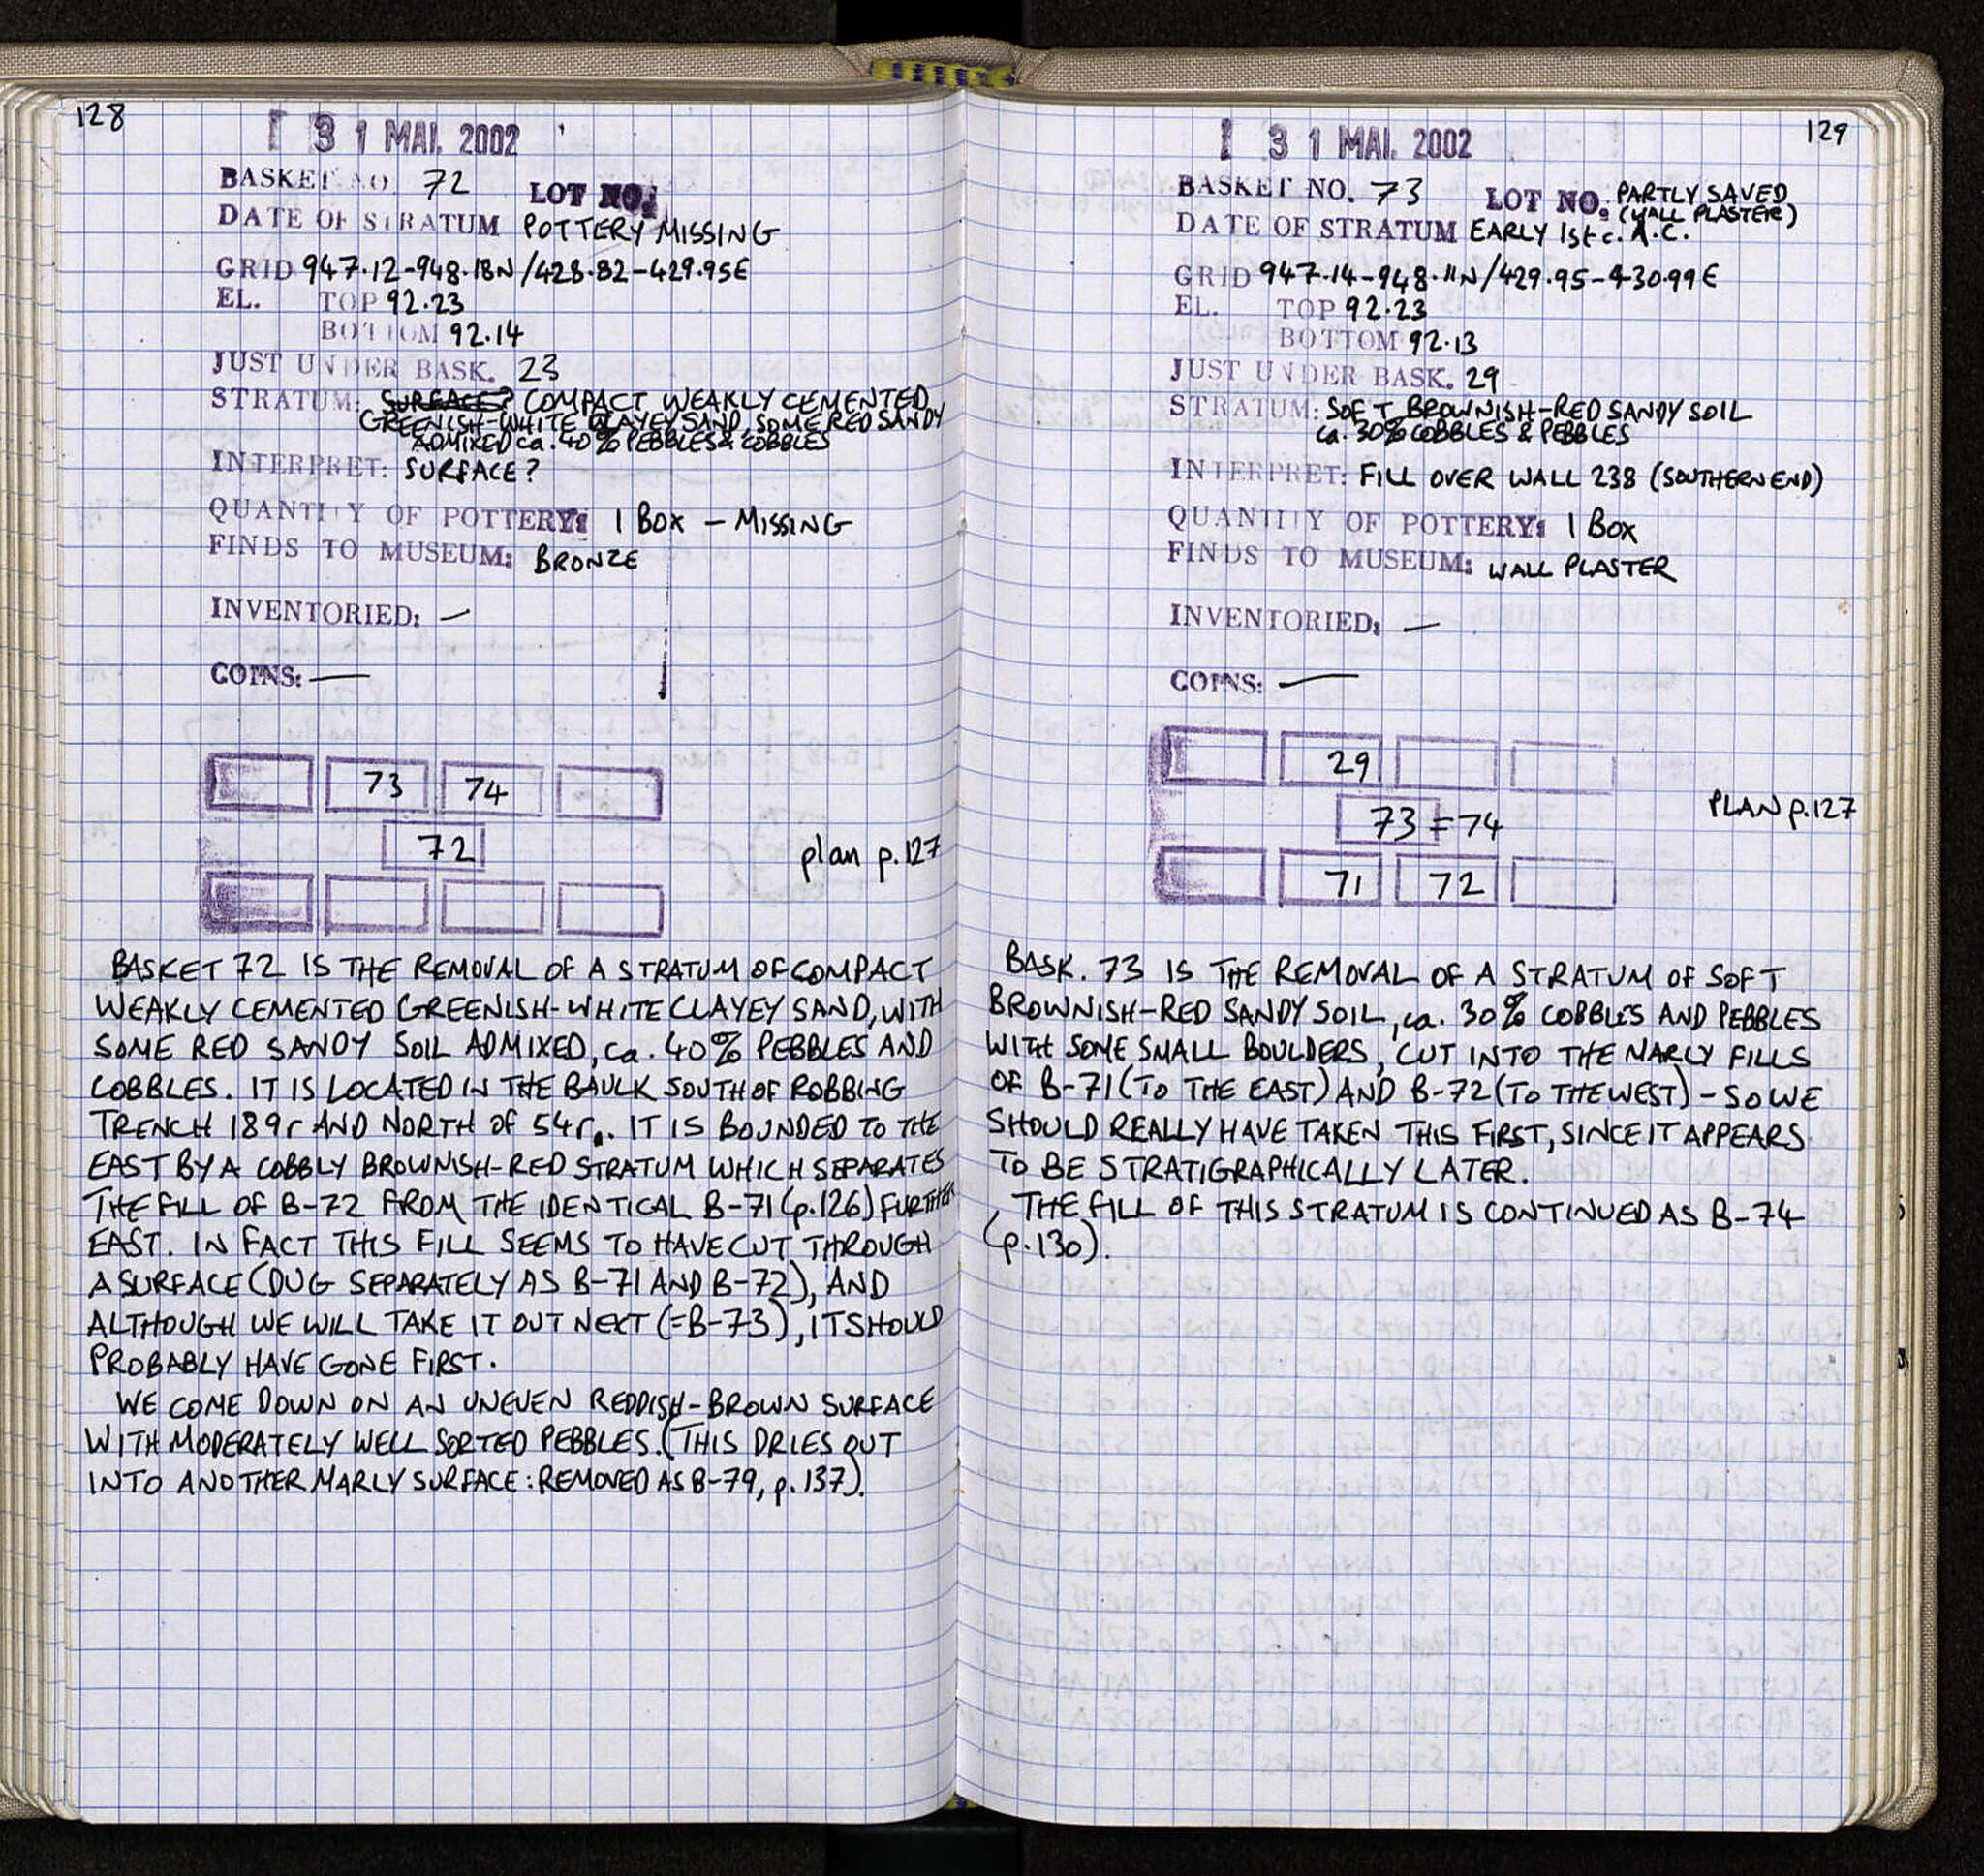 128
31 MAI. 2002
BASKET NO. 72 LOT NO.
DATE OF STRATUM POTTERY MISSING
GRID 947.12-948.18N/428.82-429.95E
EL. TOP 92.23
BOTTOM 92.14
JUST UNDER BASK. 23
STRATUM: SURFACE? COMPACT WEAKLY CEMENTED
GREENISH-WHITE CLAYEY SAND, SOME RED SANDY
ADMIXED ca. 40% PEBBLES & COBBLES
INTERPRET: SURFACE?
QUANTITY OF POTTERY: 1 BOX - MISSING
FINDS TO MUSEUM: BRONZE
INVENTORIED: —
COINS: —
73 74
72
plan p.127
BASKET 72 IS THE REMOVAL OF A STRATUM OF COMPACT
WEAKLY CEMENTED GREENISH-WHITE CLAYEY SAND, WITH
SOME RED SANDY SOIL ADMIXED, ca. 40% PEBBLES AND
COBBLES. IT IS LOCATED IN THE BAULK SOUTH OF ROBBING
TRENCH 189r AND NORTH OF 54r. IT IS BOUNDED TO THE
EAST BY A COBBLY BROWNISH-RED STRATUM WHICH SEPARATES
THE FILL OF B-72 FROM THE IDENTICAL B-71 (p.126) FURTHER
EAST. IN FACT THIS FILL SEEMS TO HAVE CUT THROUGH
A SURFACE (DUG SEPARATELY AS B-71 AND B-72), AND
ALTHOUGH WE WILL TAKE IT OUT NEXT (=B-73), IT SHOULD
PROBABLY HAVE GONE FIRST.
WE COME DOWN ON AN UNEVEN REDDISH-BROWN SURFACE
WITH MODERATELY WELL SORTED PEBBLES. (THIS DRIES OUT
INTO ANOTHER MARLY SURFACE: REMOVED AS B-79, p.137).
129
31 MAI. 2002
BASKET NO. 73 LOT NO. PARTLY SAVED
(WALL PLASTER)
DATE OF STRATUM EARLY 1st c. A.C.
GRID 947.14-948.11N/429.95-430.99E
EL. TOP 92.23
BOTTOM 92.13
JUST UNDER BASK. 29
STRATUM: SOFT BROWNISH-RED SANDY SOIL
ca. 30% COBBLES & PEBBLES
INTERPRET: FILL OVER WALL 238 (SOUTHERN END)
QUANTITY OF POTTERY: 1 BOX
FINDS TO MUSEUM: WALL PLASTER
INVENTORIED: —
COINS: —
29
73 = 74
71 72
PLAN p.127
BASK. 73 IS THE REMOVAL OF A STRATUM OF SOFT
BROWNISH-RED SANDY SOIL, ca. 30% COBBLES AND PEBBLES
WITH SOME SMALL BOULDERS, CUT INTO THE MARLY FILLS
OF B-71 (TO THE EAST) AND B-72 (TO THE WEST) - SO WE
SHOULD REALLY HAVE TAKEN THIS FIRST, SINCE IT APPEARS
TO BE STRATIGRAPHICALLY LATER.
THE FILL OF THIS STRATUM IS CONTINUED AS B-74
(p.130).